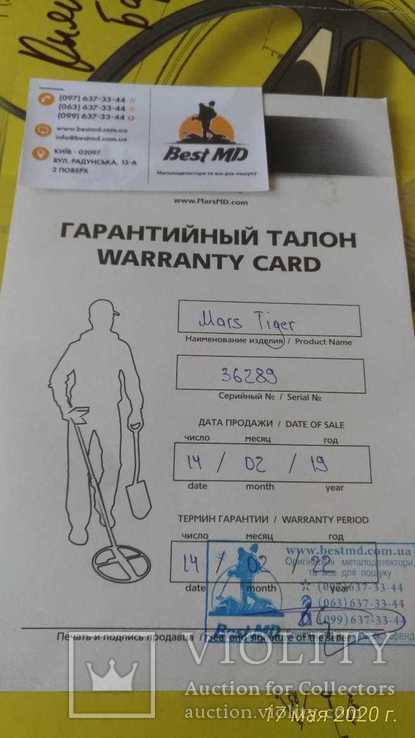 (097) 637-33-44
(063) 637-33-44
(099) 637-33-44
www.bestmd.com.ua
info@bestmd.com.ua
КИЇВ - 02097
ВУЛ. РАДУНСЬКА, 13-А
2 ПОВЕРХ
Best MD
Металодетектори та все для пошуку
www.MarsMD.com
ГАРАНТИЙНЫЙ ТАЛОН
WARRANTY CARD
Mars Tiger
Наименование изделия / Product Name
36289
Серийный № / Serial №
ДАТА ПРОДАЖИ / DATE OF SALE
число месяц год
14 / 02 / 19
date month year
ТЕРМИН ГАРАНТИИ / WARRANTY PERIOD
число месяц год
14 / 02 / 22
date month year
www.bestmd.com.ua
металодетектори,
та все для пошуку
637-33-44
(063) 637-33-44
(099) 637-33-44
Best MD
Печать и подпись продавца / Seal and signature of the seller
VIOLITY
Auction for Collectors
auction.violity.com
17 мая 2020 г.